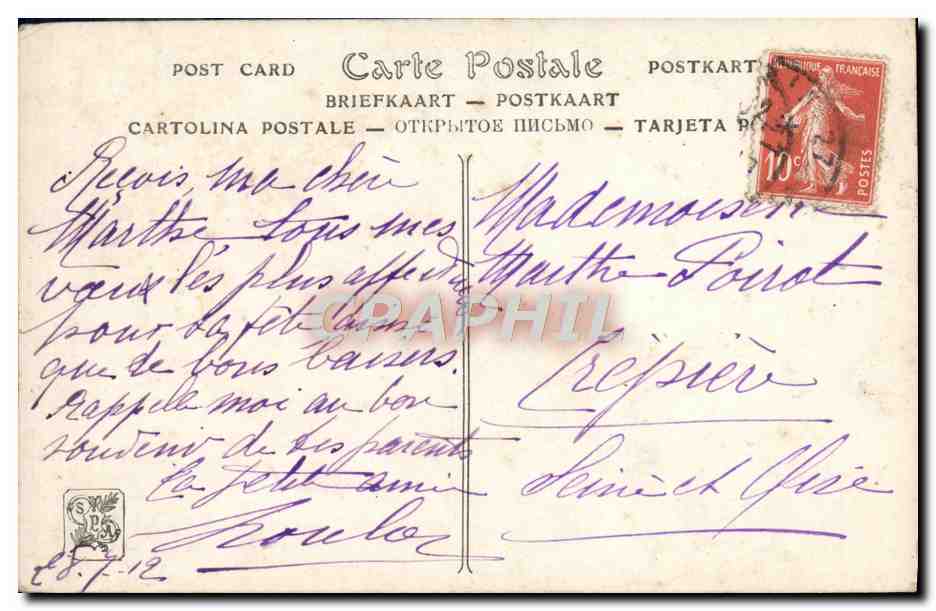 POST CARD Carte Postale POSTKART
BRIEFKAART — POSTKAART
CARTOLINA POSTALE — ОТКРЫТОЕ ПИСЬМО — TARJETA P
RÉPUBLIQUE FRANÇAISE
10c
POSTES
Reçois, ma chère
Marthe tous mes
vœux les plus affectueux
pour ta fête ainsi
que de bons baisers.
Rappelle moi au bon
souvenir de tes parents
Ta petite amie
28-7-12
SPA
Mademoiselle
Marthe Poirot
Crépière
Seine et Oise
CPAPHIL